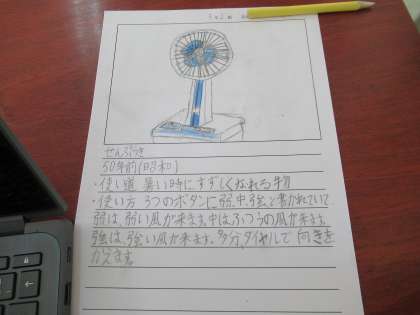 せんぷうき
50年前(昭和)
・使い道 暑い時にすずしくなれる物
・使い方 3つのボタンに弱、中、強と書かれていて
弱は、弱い風が来ます。中はふつうの風が来ます。
強は、強い風が来ます。多分、ダイヤルで向きを
かえます。